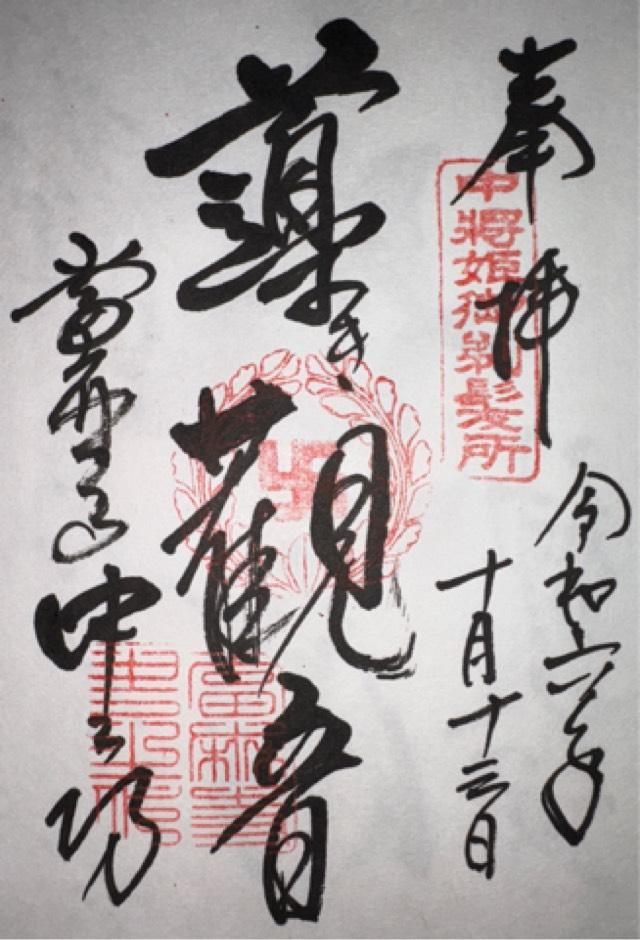 奉拝
中將姫御剃髪所
令和六年
十月十三日
導き觀音
卍
當麻寺
當麻寺中之坊